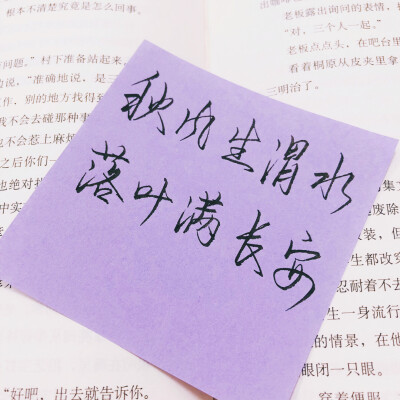 根本不清楚究竟是怎么回事。
问题。”村下准备站起来。
边说，“准确地说，是三
作，别的地方找得到
我不会去碰那种事
也不会惹上麻烦
之后你们一
也绝对
中实
老板露出询问的表情，
“对，三个人一起。”
老板点点头，在吧台里
看着桐原从皮夹里拿
三明治了。
秋风生渭水
落叶满长安
集文
废除
装，但
生都改穿
忍耐着不去
生一身流行
的情景，在他
眼闭一只眼。
穿着便服
“好吧，出去就告诉你。